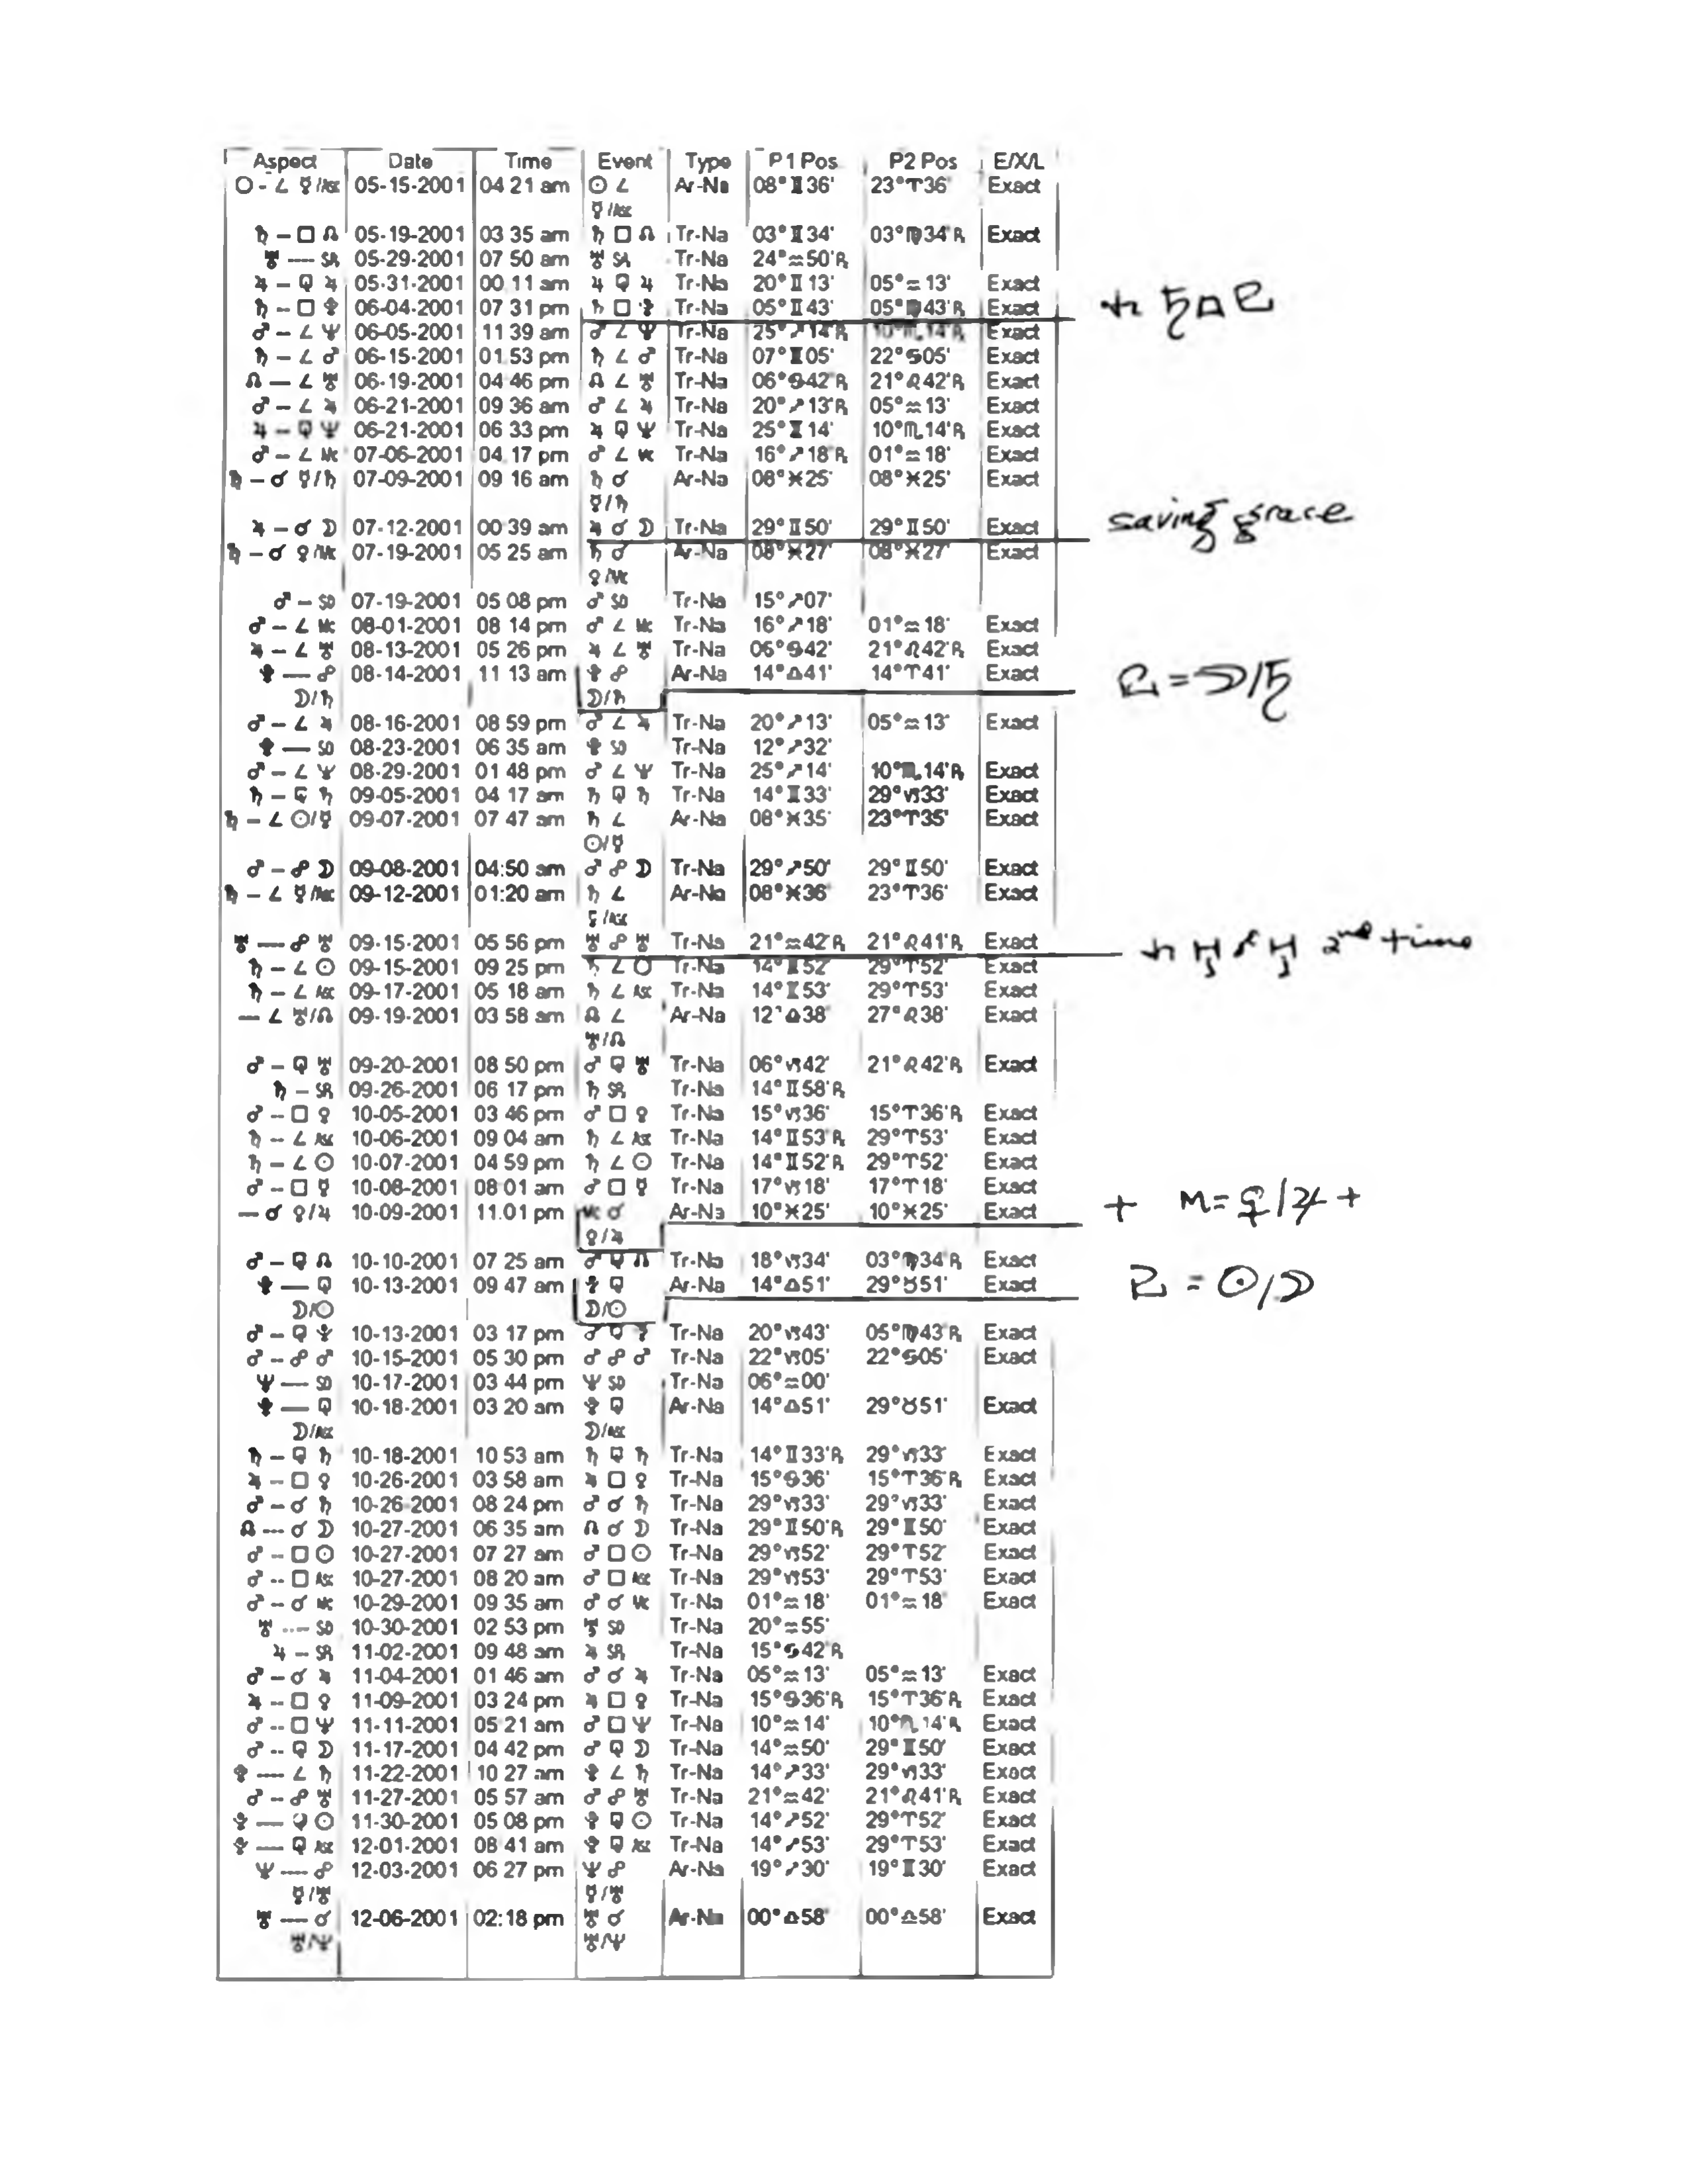 Aspect Date Time Event Type P1 Pos P2 Pos E/X/L
☉ - ∠ ☿/Asc 05-15-2001 04 21 am ☉ ∠ Ar-Na 08°♊36' 23°♈36' Exact
☿/Asc
♄ – □ ☊ 05-19-2001 03 35 am ♄ □ ☊ Tr-Na 03°♊34' 03°♍34'℞ Exact
♅ — SR 05-29-2001 07 50 am ♅ SR Tr-Na 24°♒50'℞
♃ – ⚼ ♃ 05-31-2001 00 11 am ♃ ⚼ ♃ Tr-Na 20°♊13' 05°♒13' Exact
♄ – □ ♇ 06-04-2001 07 31 pm ♄ □ ♇ Tr-Na 05°♊43' 05°♍43'℞ Exact tr ♄ □ ♇
♂ – ∠ ♆ 06-05-2001 11 39 am ♂ ∠ ♆ Tr-Na 25°♐14'℞ 10°♏14'℞ Exact
♄ – ∠ ♂ 06-15-2001 01 53 pm ♄ ∠ ♂ Tr-Na 07°♊05' 22°♋05' Exact
☊ — ∠ ♅ 06-19-2001 04 46 pm ☊ ∠ ♅ Tr-Na 06°♋42'℞ 21°♌42'℞ Exact
♂ – ∠ ♃ 06-21-2001 09 36 am ♂ ∠ ♃ Tr-Na 20°♐13'℞ 05°♒13' Exact
♃ – ⚼ ♆ 06-21-2001 06 33 pm ♃ ⚼ ♆ Tr-Na 25°♊14' 10°♏14'℞ Exact
♂ – ∠ Mc 07-06-2001 04 17 pm ♂ ∠ Mc Tr-Na 16°♐18'℞ 01°♒18' Exact
♄ – ☌ ☿/♄ 07-09-2001 09 16 am ♄ ☌ Ar-Na 08°♓25' 08°♓25' Exact
☿/♄
♃ – ☌ ☽ 07-12-2001 00 39 am ♃ ☌ ☽ Tr-Na 29°♊50' 29°♊50' Exact saving grace
♄ – ☌ ♀/Mc 07-19-2001 05 25 am ♄ ☌ Ar-Na 08°♓27' 08°♓27' Exact
♀/Mc
♂ – SD 07-19-2001 05 08 pm ♂ SD Tr-Na 15°♐07'
♂ – ∠ Mc 08-01-2001 08 14 pm ♂ ∠ Mc Tr-Na 16°♐18' 01°♒18' Exact
♃ – ∠ ♅ 08-13-2001 05 26 pm ♃ ∠ ♅ Tr-Na 06°♋42' 21°♌42'℞ Exact
♇ — ☍ 08-14-2001 11 13 am ♇ ☍ Ar-Na 14°♎41' 14°♈41' Exact ♇ = ☽/♄
☽/♄ ☽/♄
♂ – ∠ ♃ 08-16-2001 08 59 pm ♂ ∠ ♃ Tr-Na 20°♐13' 05°♒13' Exact
♇ — SD 08-23-2001 06 35 am ♇ SD Tr-Na 12°♐32'
♂ – ∠ ♆ 08-29-2001 01 48 pm ♂ ∠ ♆ Tr-Na 25°♐14' 10°♏14'℞ Exact
♄ – ⚼ ♄ 09-05-2001 04 17 am ♄ ⚼ ♄ Tr-Na 14°♊33' 29°♑33' Exact
♄ – ∠ ☉/☿ 09-07-2001 07 47 am ♄ ∠ Ar-Na 08°♓35' 23°♈35' Exact
☉/☿
♂ – ☍ ☽ 09-08-2001 04:50 am ♂ ☍ ☽ Tr-Na 29°♐50' 29°♊50' Exact
♄ – ∠ ☿/Asc 09-12-2001 01:20 am ♄ ∠ Ar-Na 08°♓36' 23°♈36' Exact
☿/Asc
♅ — ☍ ♅ 09-15-2001 05 56 pm ♅ ☍ ♅ Tr-Na 21°♒42'℞ 21°♌41'℞ Exact tr ♅ ☍ ♅ 2nd time
♄ – ∠ ☉ 09-15-2001 09 25 pm ♄ ∠ ☉ Tr-Na 14°♊52' 29°♈52' Exact
♄ – ∠ Asc 09-17-2001 05 18 am ♄ ∠ Asc Tr-Na 14°♊53' 29°♈53' Exact
— ∠ ♅/☊ 09-19-2001 03 58 am ☊ ∠ Ar-Na 12°♎38' 27°♌38' Exact
♅/☊
♂ – ⚼ ♅ 09-20-2001 08 50 pm ♂ ⚼ ♅ Tr-Na 06°♑42' 21°♌42'℞ Exact
♄ – SR 09-26-2001 06 17 pm ♄ SR Tr-Na 14°♊58'℞
♂ – □ ♀ 10-05-2001 03 46 pm ♂ □ ♀ Tr-Na 15°♑36' 15°♈36'℞ Exact
♄ – ∠ Asc 10-06-2001 09 04 am ♄ ∠ Asc Tr-Na 14°♊53'℞ 29°♈53' Exact
♄ – ∠ ☉ 10-07-2001 04 59 pm ♄ ∠ ☉ Tr-Na 14°♊52'℞ 29°♈52' Exact
♂ – □ ☿ 10-08-2001 08 01 am ♂ □ ☿ Tr-Na 17°♑18' 17°♈18' Exact
— ☌ ♀/♃ 10-09-2001 11.01 pm Mc ☌ Ar-Na 10°♓25' 10°♓25' Exact + M = ♀/♃ +
♀/♃
♂ – ⚼ ☊ 10-10-2001 07 25 am ♂ ⚼ ☊ Tr-Na 18°♑34' 03°♍34'℞ Exact
♇ — ⚼ 10-13-2001 09 47 am ♇ ⚼ Ar-Na 14°♎51' 29°♉51' Exact ♇ = ☉/☽
☽/☉ ☽/☉
♂ – ⚼ ♇ 10-13-2001 03 17 pm ♂ ⚼ ♇ Tr-Na 20°♑43' 05°♍43'℞ Exact
♂ – ☍ ♂ 10-15-2001 05 30 pm ♂ ☍ ♂ Tr-Na 22°♑05' 22°♋05' Exact
♆ — SD 10-17-2001 03 44 pm ♆ SD Tr-Na 06°♒00'
♇ — ⚼ 10-18-2001 03 20 am ♇ ⚼ Ar-Na 14°♎51' 29°♉51' Exact
☽/Asc ☽/Asc
♄ – ⚼ ♄ 10-18-2001 10 53 am ♄ ⚼ ♄ Tr-Na 14°♊33'℞ 29°♑33' Exact
♃ – □ ♀ 10-26-2001 03 58 am ♃ □ ♀ Tr-Na 15°♋36' 15°♈36'℞ Exact
♂ – ☌ ♄ 10-26-2001 08 24 pm ♂ ☌ ♄ Tr-Na 29°♑33' 29°♑33' Exact
☊ --- ☌ ☽ 10-27-2001 06 35 am ☊ ☌ ☽ Tr-Na 29°♊50'℞ 29°♊50' Exact
♂ – □ ☉ 10-27-2001 07 27 am ♂ □ ☉ Tr-Na 29°♑52' 29°♈52' Exact
♂ -- □ Asc 10-27-2001 08 20 am ♂ □ Asc Tr-Na 29°♑53' 29°♈53' Exact
♂ – ☌ Mc 10-29-2001 09 35 am ♂ ☌ Mc Tr-Na 01°♒18' 01°♒18' Exact
♅ --- SD 10-30-2001 02 53 pm ♅ SD Tr-Na 20°♒55'
♃ – SR 11-02-2001 09 48 am ♃ SR Tr-Na 15°♋42'℞
♂ – ☌ ♃ 11-04-2001 01 46 am ♂ ☌ ♃ Tr-Na 05°♒13' 05°♒13' Exact
♃ -- □ ♀ 11-09-2001 03 24 pm ♃ □ ♀ Tr-Na 15°♋36'℞ 15°♈36'℞ Exact
♂ -- □ ♆ 11-11-2001 05 21 am ♂ □ ♆ Tr-Na 10°♒14' 10°♏14'℞ Exact
♂ -- ⚼ ☽ 11-17-2001 04 42 pm ♂ ⚼ ☽ Tr-Na 14°♒50' 29°♊50' Exact
♇ — ∠ ♄ 11-22-2001 10 27 am ♇ ∠ ♄ Tr-Na 14°♐33' 29°♑33' Exact
♂ – ☍ ♅ 11-27-2001 05 57 am ♂ ☍ ♅ Tr-Na 21°♒42' 21°♌41'℞ Exact
♇ — ⚼ ☉ 11-30-2001 05 08 pm ♇ ⚼ ☉ Tr-Na 14°♐52' 29°♈52' Exact
♇ — ⚼ Asc 12-01-2001 08 41 am ♇ ⚼ Asc Tr-Na 14°♐53' 29°♈53' Exact
♆ — ☍ 12-03-2001 06 27 pm ♆ ☍ Ar-Na 19°♐30' 19°♊30' Exact
☿/♅ ☿/♅
♅ — ☌ 12-06-2001 02:18 pm ♅ ☌ Ar-Na 00°♎58' 00°♎58' Exact
♅/♆ ♅/♆